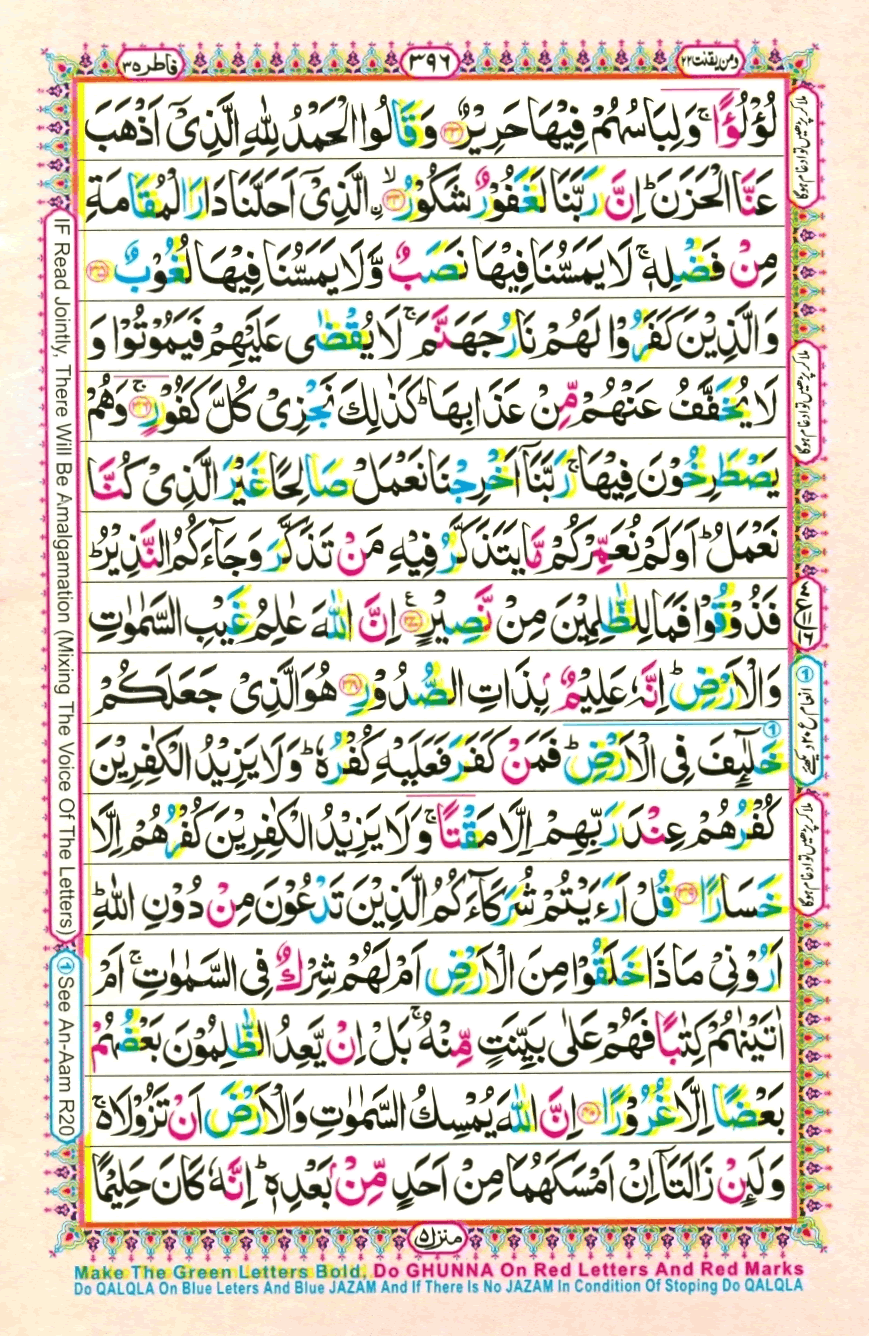 فاطر ٣٥
٣٩٦
ومن يقنت ٢٢
لُؤْلُؤًا ۚ وَلِبَاسُهُمْ فِيْهَا حَرِيْرٌ ﴿٣٣﴾ وَقَالُوا الْحَمْدُ لِلّٰهِ الَّذِيْۤ اَذْهَبَ
عَنَّا الْحَزَنَ ؕ اِنَّ رَبَّنَا لَغَفُوْرٌ شَكُوْرُ ۙ﴿٣٤﴾ ۨالَّذِيْۤ اَحَلَّنَا دَارَ الْمُقَامَةِ
مِنْ فَضْلِهٖ ۚ لَا يَمَسُّنَا فِيْهَا نَصَبٌ وَّلَا يَمَسُّنَا فِيْهَا لُغُوْبٌ ﴿٣٥﴾
وَالَّذِيْنَ كَفَرُوْا لَهُمْ نَارُ جَهَنَّمَ ۚ لَا يُقْضٰى عَلَيْهِمْ فَيَمُوْتُوْا وَ
لَا يُخَفَّفُ عَنْهُمْ مِّنْ عَذَابِهَا ؕ كَذٰلِكَ نَجْزِيْ كُلَّ كَفُوْرٍ ۚ﴿٣٦﴾ وَهُمْ
يَصْطَرِخُوْنَ فِيْهَا ۚ رَبَّنَاۤ اَخْرِجْنَا نَعْمَلْ صَالِحًا غَيْرَ الَّذِيْ كُنَّا
نَعْمَلُ ؕ اَوَلَمْ نُعَمِّرْكُمْ مَّا يَتَذَكَّرُ فِيْهِ مَنْ تَذَكَّرَ وَجَآءَكُمُ النَّذِيْرُ ؕ
فَذُوْقُوْا فَمَا لِلظّٰلِمِيْنَ مِنْ نَّصِيْرٍ ﴿٣٧﴾ اِنَّ اللّٰهَ عٰلِمُ غَيْبِ السَّمٰوٰتِ
وَالْاَرْضِ ؕ اِنَّهٗ عَلِيْمٌۢ بِذَاتِ الصُّدُوْرِ ﴿٣٨﴾ هُوَ الَّذِيْ جَعَلَكُمْ
خَلٰٓئِفَ فِي الْاَرْضِ ؕ فَمَنْ كَفَرَ فَعَلَيْهِ كُفْرُهٗ ؕ وَلَا يَزِيْدُ الْكٰفِرِيْنَ
كُفْرُهُمْ عِنْدَ رَبِّهِمْ اِلَّا مَقْتًا ۚ وَلَا يَزِيْدُ الْكٰفِرِيْنَ كُفْرُهُمْ اِلَّا
خَسَارًا ﴿٣٩﴾ قُلْ اَرَءَيْتُمْ شُرَكَآءَكُمُ الَّذِيْنَ تَدْعُوْنَ مِنْ دُوْنِ اللّٰهِ ؕ
اَرُوْنِيْ مَاذَا خَلَقُوْا مِنَ الْاَرْضِ اَمْ لَهُمْ شِرْكٌ فِي السَّمٰوٰتِ ۚ اَمْ
اٰتَيْنٰهُمْ كِتٰبًا فَهُمْ عَلٰى بَيِّنَتٍ مِّنْهُ ۚ بَلْ اِنْ يَّعِدُ الظّٰلِمُوْنَ بَعْضُهُمْ
بَعْضًا اِلَّا غُرُوْرًا ﴿٤٠﴾ اِنَّ اللّٰهَ يُمْسِكُ السَّمٰوٰتِ وَالْاَرْضَ اَنْ تَزُوْلَا ۚ۬
وَلَئِنْ زَالَتَاۤ اِنْ اَمْسَكَهُمَا مِنْ اَحَدٍ مِّنْۢ بَعْدِهٖ ؕ اِنَّهٗ كَانَ حَلِيْمًا
منزل ٥
ملا کر پڑھیں تو ادغام ہوگا
ملا کر پڑھیں تو ادغام ہوگا
ملا کر پڑھیں تو ادغام ہوگا
IF Read Jointly, There Will Be Amalgamation (Mixing The Voice Of The Letters)
① See An-Aam R20
Make The Green Letters Bold, Do GHUNNA On Red Letters And Red Marks
Do QALQLA On Blue Leters And Blue JAZAM And If There Is No JAZAM In Condition Of Stoping Do QALQLA